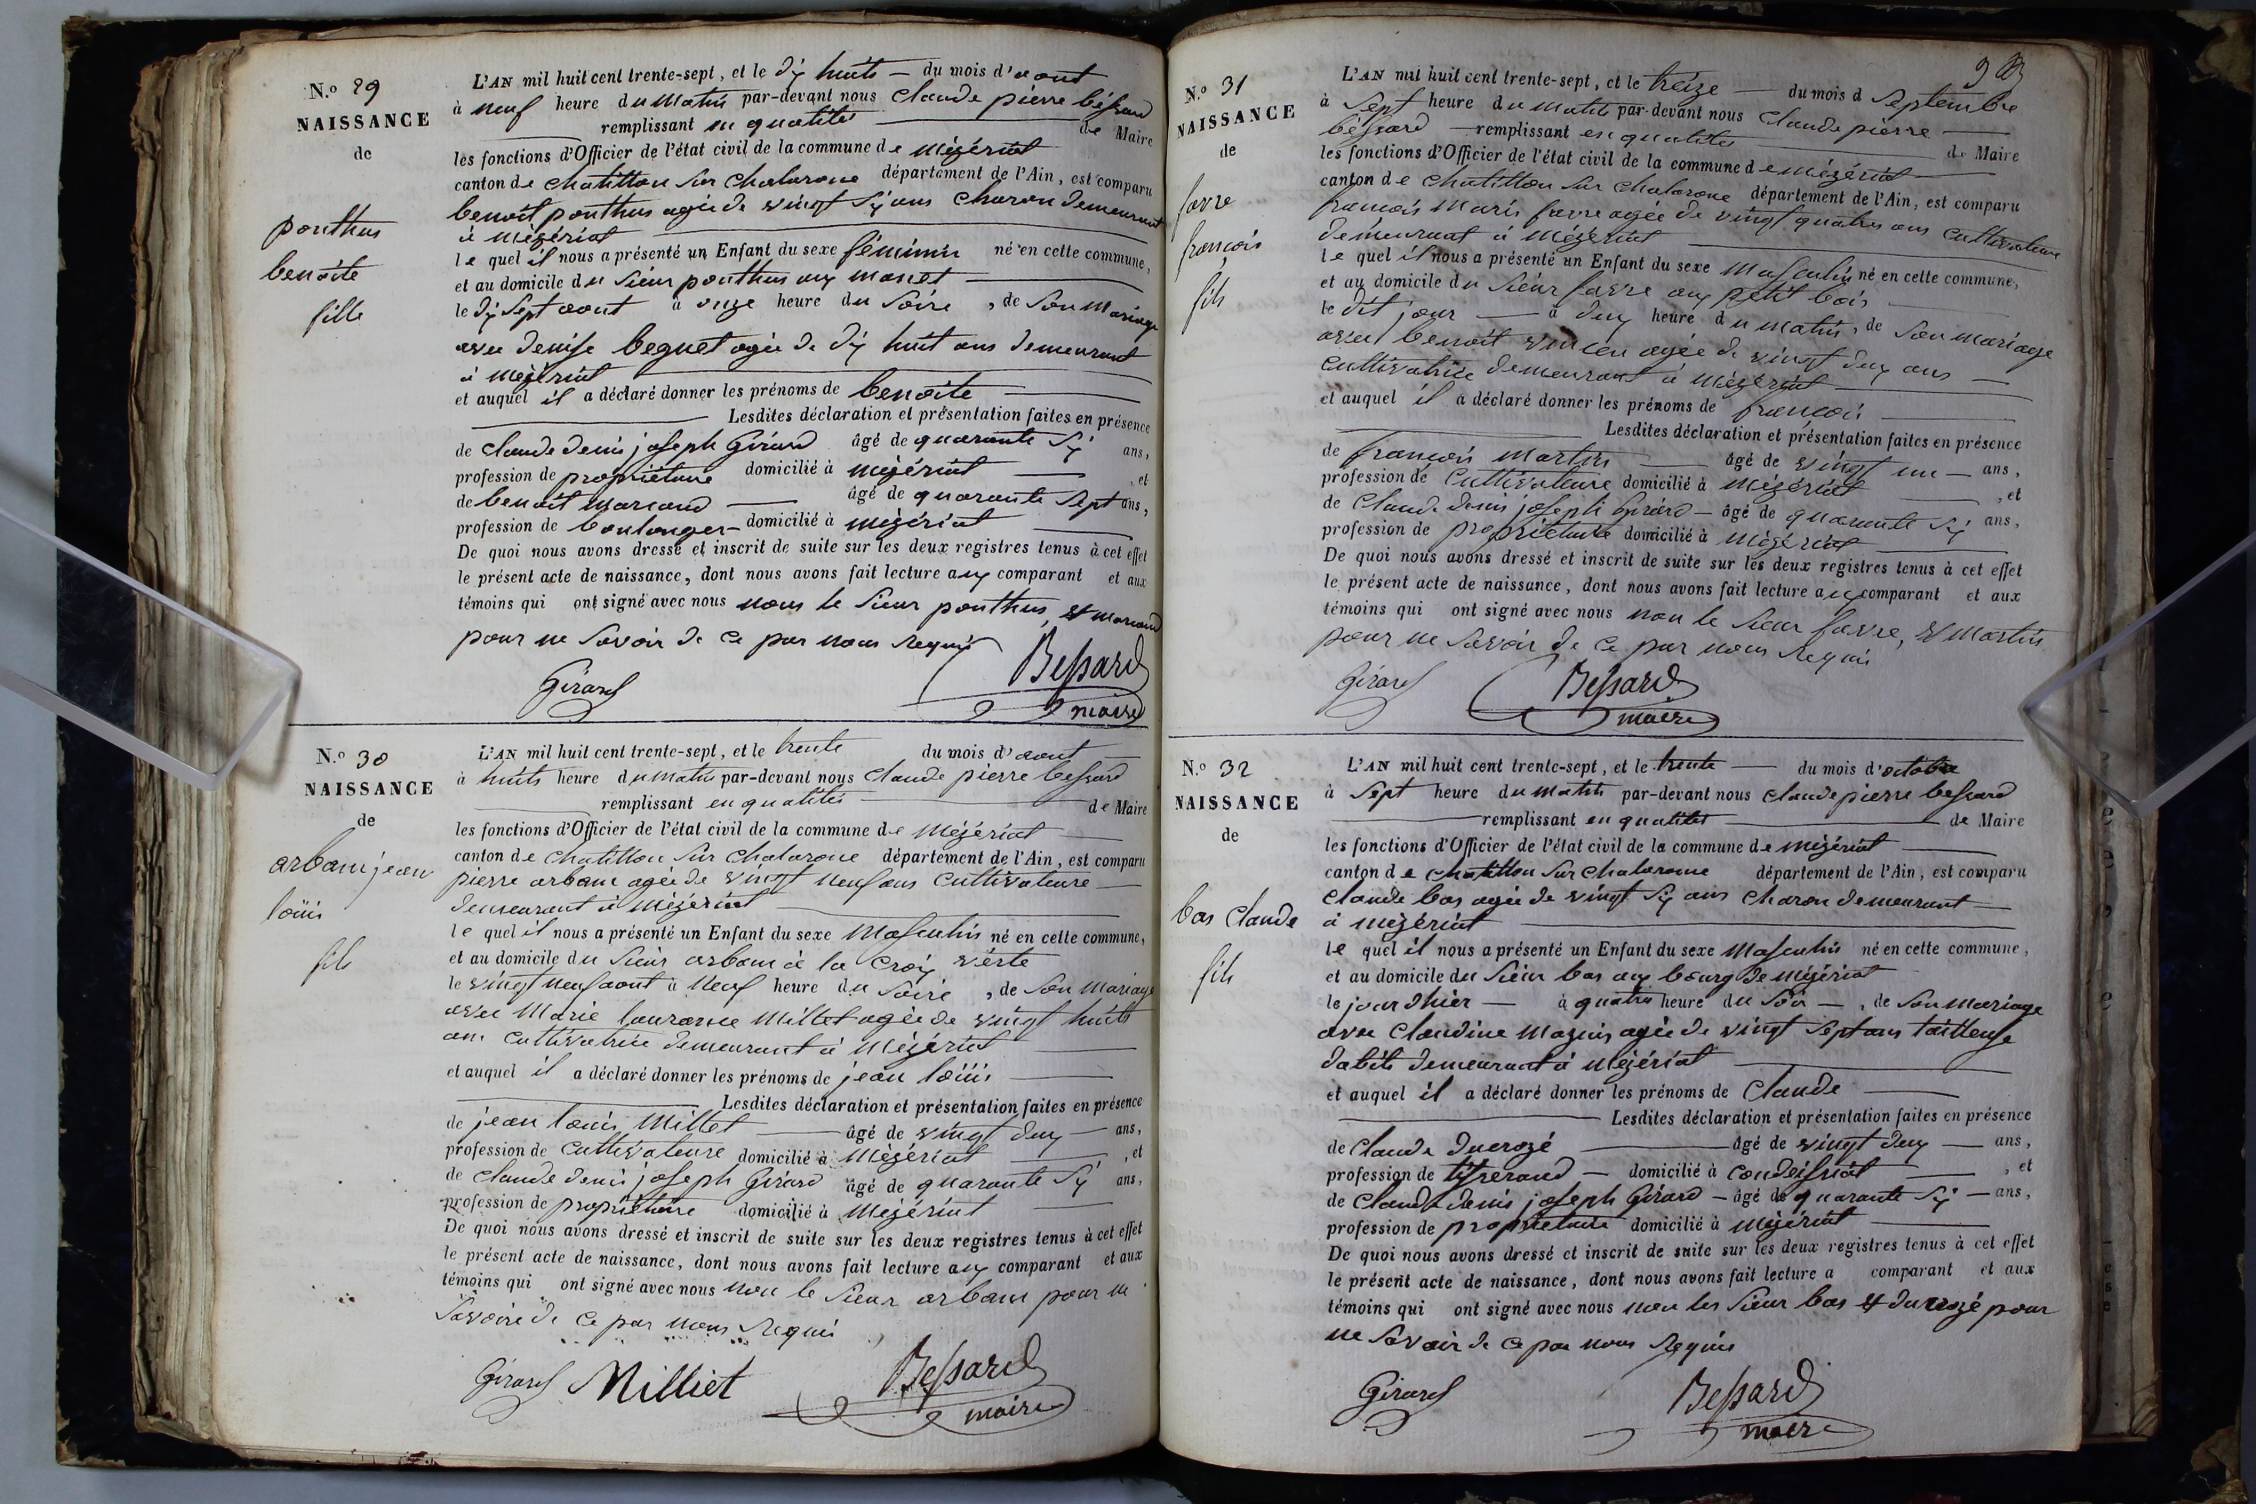 N.o 29
NAISSANCE
de
ponthus
benoite
fille
L'AN mil huit cent trente-sept, et le dix huits — du mois d'aout
à neuf heure du matin par-devant nous Claude pierre bessard
remplissant en qualités de Maire
les fonctions d'Officier de l'état civil de la commune de mézériat
canton de chatillon sur chalarone département de l'Ain, est comparu
benoit ponthus agée de vingt six ans charon demeurant
à mézériat
le quel il nous a présenté un Enfant du sexe féminin né en cette commune,
et au domicile du sieur ponthus aux
le dix sept aout à onze heure du soire, de son mariage
avec denise beguet agée de dix huit ans demeurant
à mézériat
et auquel il a déclaré donner les prénoms de benoite
Lesdites déclaration et présentation faites en présence
de claude denis joseph Girard âgé de quarante six ans,
profession de propriétaire domicilié à mézériat, et
de benoit marcand âgé de quarante sept ans,
profession de boulanger domicilié à mézériat
De quoi nous avons dressé et inscrit de suite sur les deux registres tenus à cet effet
le présent acte de naissance, dont nous avons fait lecture aux comparant et aux
témoins qui ont signé avec nous nous le sieur ponthus, et marcand
pour ne savoir de ce par nous requis
Girard Bessard
maire
N.o 30
NAISSANCE
de
arbam jean
loüis
fils
L'AN mil huit cent trente-sept, et le trente du mois d'aout
à huits heure du matin par-devant nous Claude pierre bessard
remplissant en qualités de Maire
les fonctions d'Officier de l'état civil de la commune de mézériat
canton de chatillon sur chalarone département de l'Ain, est comparu
pierre arbam agée de vingt neuf ans cultivateure
demeurant à mézériat
le quel il nous a présenté un Enfant du sexe masculin né en cette commune,
et au domicile du sieur arbam à la croix verte
le vingt neuf aout à neuf heure du soire, de son mariage
avec Marie lauranse Millet agée de vingt huits
ans cultivatrice demeurant à mézériat
et auquel il a déclaré donner les prénoms de jean loüis
Lesdites déclaration et présentation faites en présence
de jean louis Millet âgé de vingt dux ans,
profession de cultivateure domicilié à mézériat, et
de claude denis joseph Girard âgé de quarante six ans,
profession de propriétaire domicilié à mézériat
De quoi nous avons dressé et inscrit de suite sur les deux registres tenus à cet effet
le présent acte de naissance, dont nous avons fait lecture aux comparant et aux
témoins qui ont signé avec nous non le sieur arbam pour ne
savoire de ce par nous requis
Girard Milliet Bessard
maire
93
N.o 31
NAISSANCE
de
favre
françois
fils
L'AN mil huit cent trente-sept, et le treize — du mois d septembre
à sept heure du matin par-devant nous Claude pierre
bessard remplissant en qualités de Maire
les fonctions d'Officier de l'état civil de la commune de mézériat
canton de chatillon sur chalarone département de l'Ain, est comparu
françois marie favre agée de vingt quatre ans cultivateure
demeurant à mézériat
le quel il nous a présenté un Enfant du sexe masculin né en cette commune,
et au domicile du sieur favre aux petit bois
le dit jour — à dux heure du matin, de son mariage
avec benoit agée de vingt dux ans —
cultivatrice demeurant à mézériat
et auquel il a déclaré donner les prénoms de françois
Lesdites déclaration et présentation faites en présence
de françois martin âgé de vingt un — ans,
profession de cultivateure domicilié à mézériat, et
de Claude denis joseph Girard — âgé de quarante six ans,
profession de propriétaire domicilié à mézériat
De quoi nous avons dressé et inscrit de suite sur les deux registres tenus à cet effet
le présent acte de naissance, dont nous avons fait lecture aux comparant et aux
témoins qui ont signé avec nous non le sieur favre, et martin
pour ne savoir de ce par nous requis
Girard Bessard
maire
N.o 32
NAISSANCE
de
bas Claude
fils
L'AN mil huit cent trente-sept, et le trente — du mois d'octobre
à sept heure du matin par-devant nous Claude pierre bessard
remplissant en qualités de Maire
les fonctions d'Officier de l'état civil de la commune de mézériat
canton de chatillon sur chalaronne département de l'Ain, est comparu
claude bas agée de vingt six ans charon demeurant
à mézériat
le quel il nous a présenté un Enfant du sexe masculin né en cette commune,
et au domicile du sieur bas aux bourg de mézériat
le jour dhier — à quatre heure du soir —, de son mariage
avec claudine mazuis agée de vingt sept ans tailleuse
dabits demeurant à mézériat
et auquel il a déclaré donner les prénoms de Claude
Lesdites déclaration et présentation faites en présence
de claude ducrozé âgé de vingt dux — ans,
profession de tisserand — domicilié à condeissiat, et
de Claude denis joseph Girard — âgé de quarante six — ans,
profession de propriétaire domicilié à mézériat
De quoi nous avons dressé et inscrit de suite sur les deux registres tenus à cet effet
le présent acte de naissance, dont nous avons fait lecture a comparant et aux
témoins qui ont signé avec nous non les sieur bas et ducrozé pour
ne savoir de ce par nous requis
Girard Bessard
maire